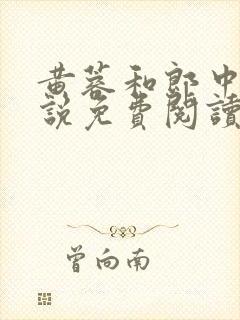 黄蓉和郎中
說免費閱讀
曾向南